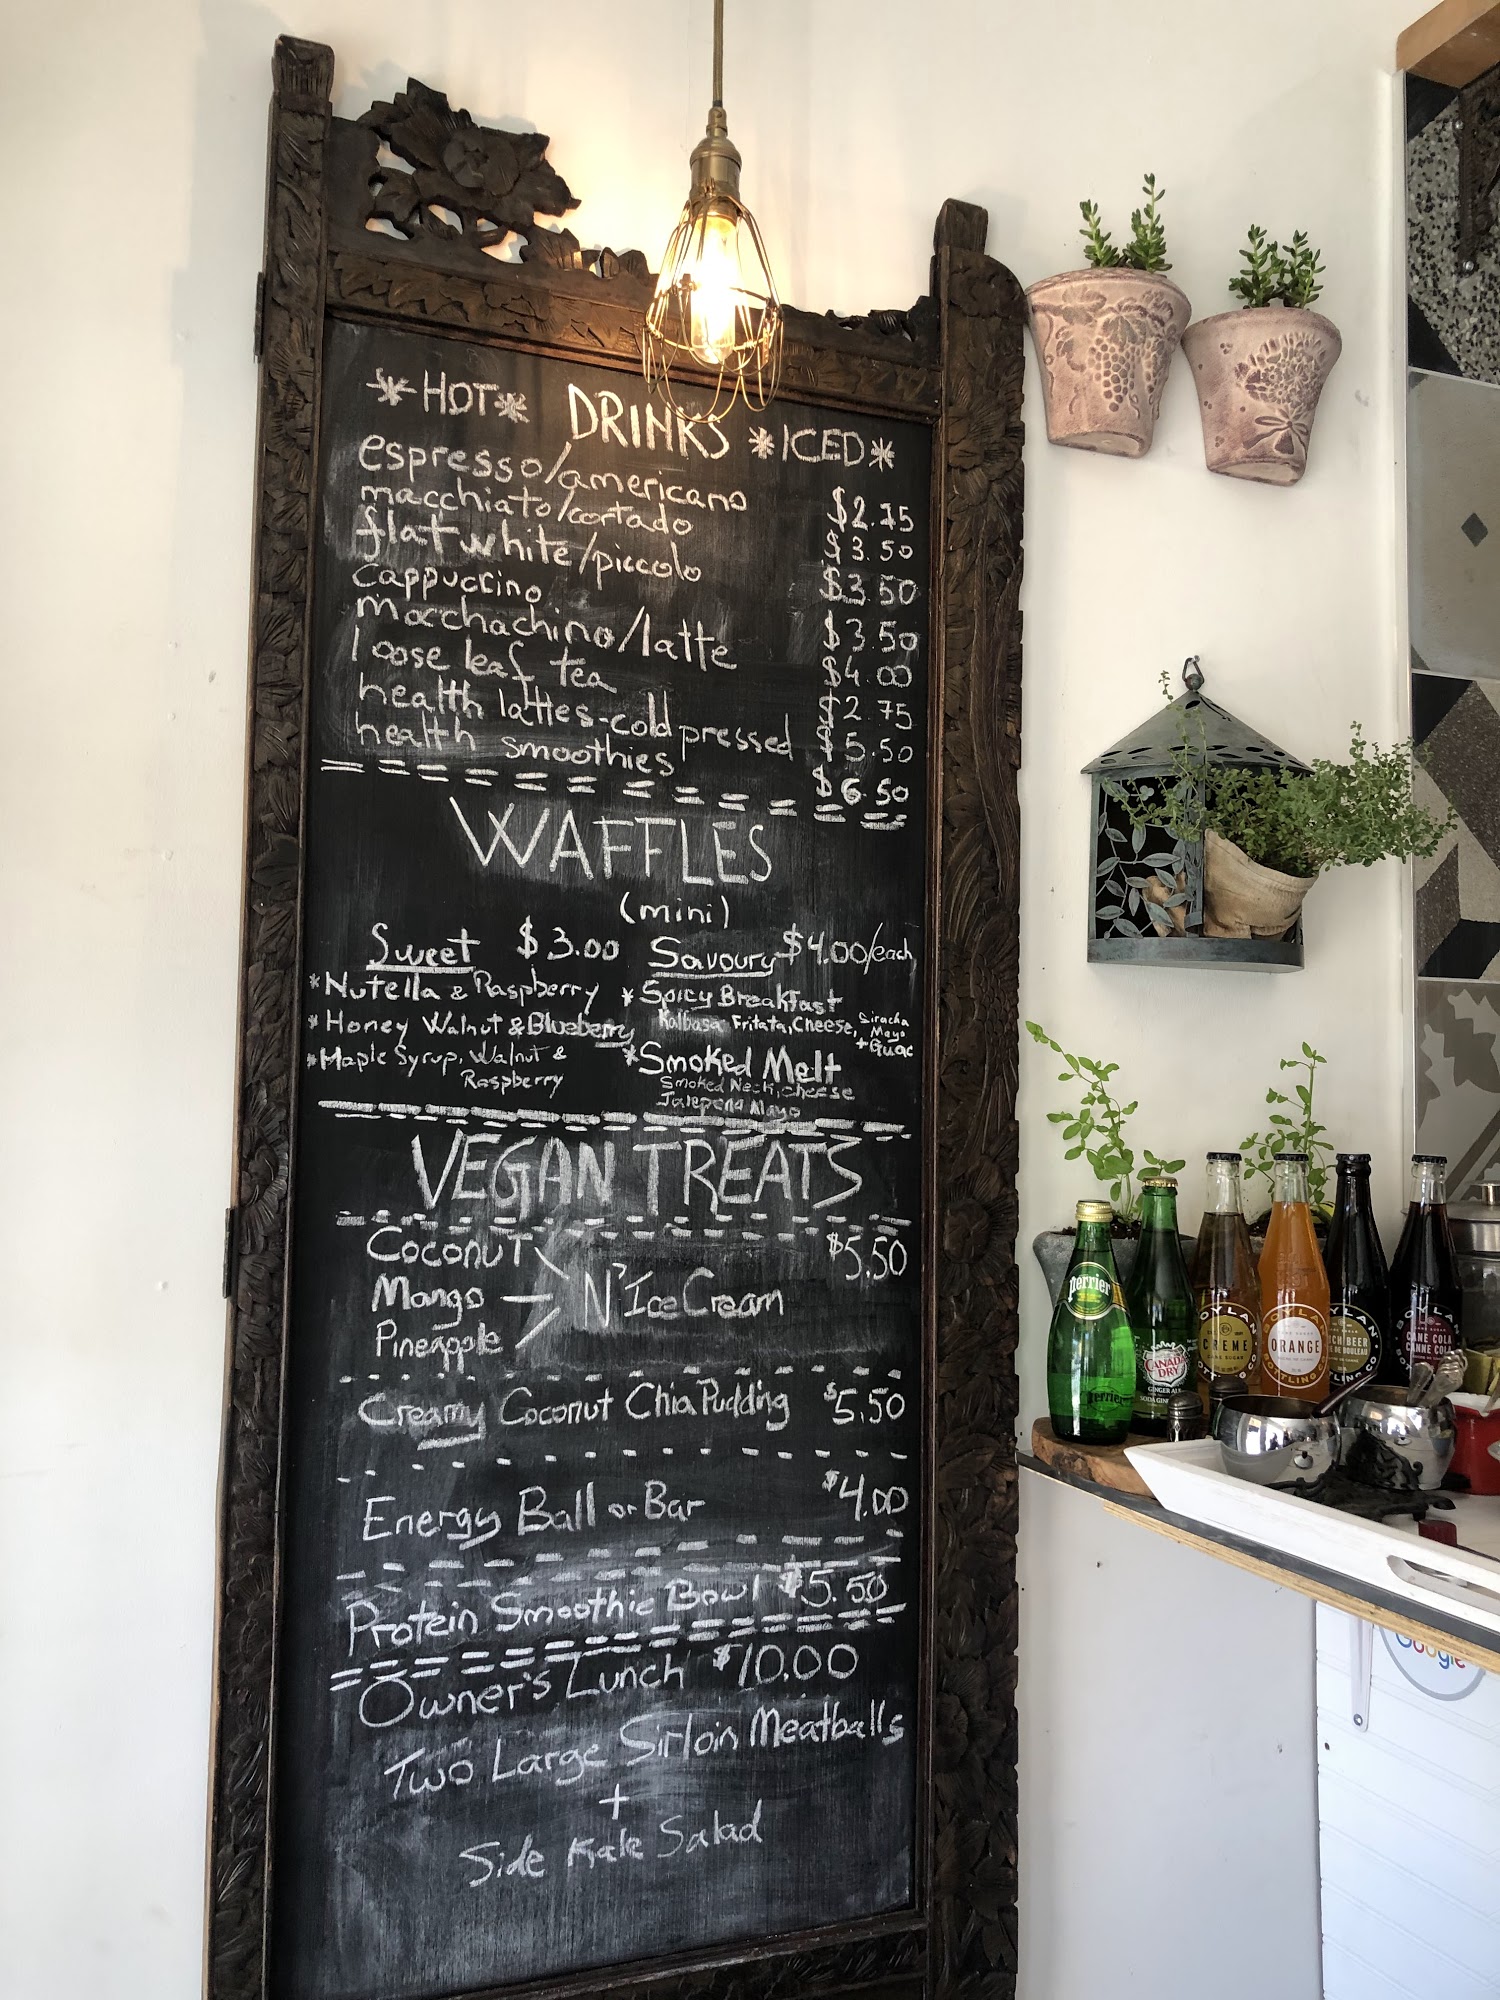 *HOT* DRINKS *ICED*
espresso/americano $2.75
macchiato/cortado $3.50
flat white/piccolo $3.50
cappuccino $3.50
mocchachino/latte $4.00
loose leaf tea $2.75
health lattes-cold pressed $5.50
health smoothies $6.50
WAFFLES
(mini)
Sweet $3.00
*Nutella & Raspberry
*Honey Walnut & Blueberry
*Maple Syrup, Walnut &
Raspberry
Savoury $4.00/each
*Spicy Breakfast
Kalbasa Fritata, Cheese, Siracha
Mayo
+Guac
*Smoked Melt
Smoked Neck, cheese
Jalepeno Mayo
VEGAN TREATS
Coconut $5.50
Mango N'Ice Cream
Pineapple
Creamy Coconut Chia Pudding $5.50
Energy Ball or Bar $4.00
Protein Smoothie Bowl $5.50
Owner's Lunch $10.00
Two Large Sirloin Meatballs
+
Side Kale Salad
Perrier
Perrier
CANADA
DRY
GINGER ALE
BOYLAN
CREME
BOYLAN
ORANGE
BOTTLING CO.
BOYLAN
BOYLAN
CANE COLA
CANNE COLA
Google